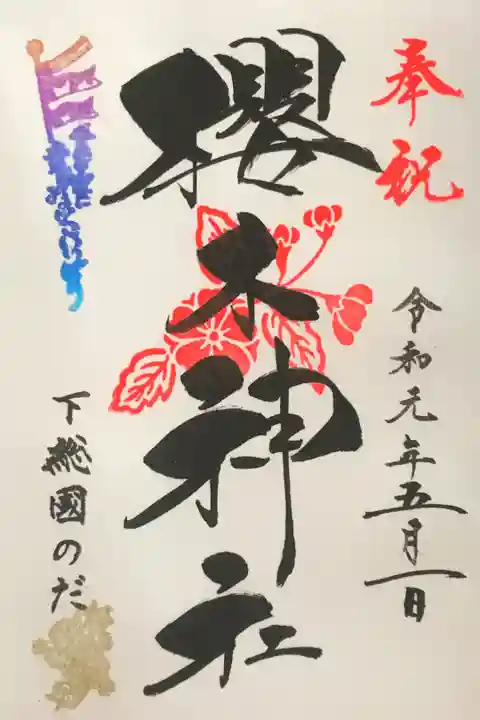 奉祝
令和元年五月一日
櫻木神社
下総國のだ